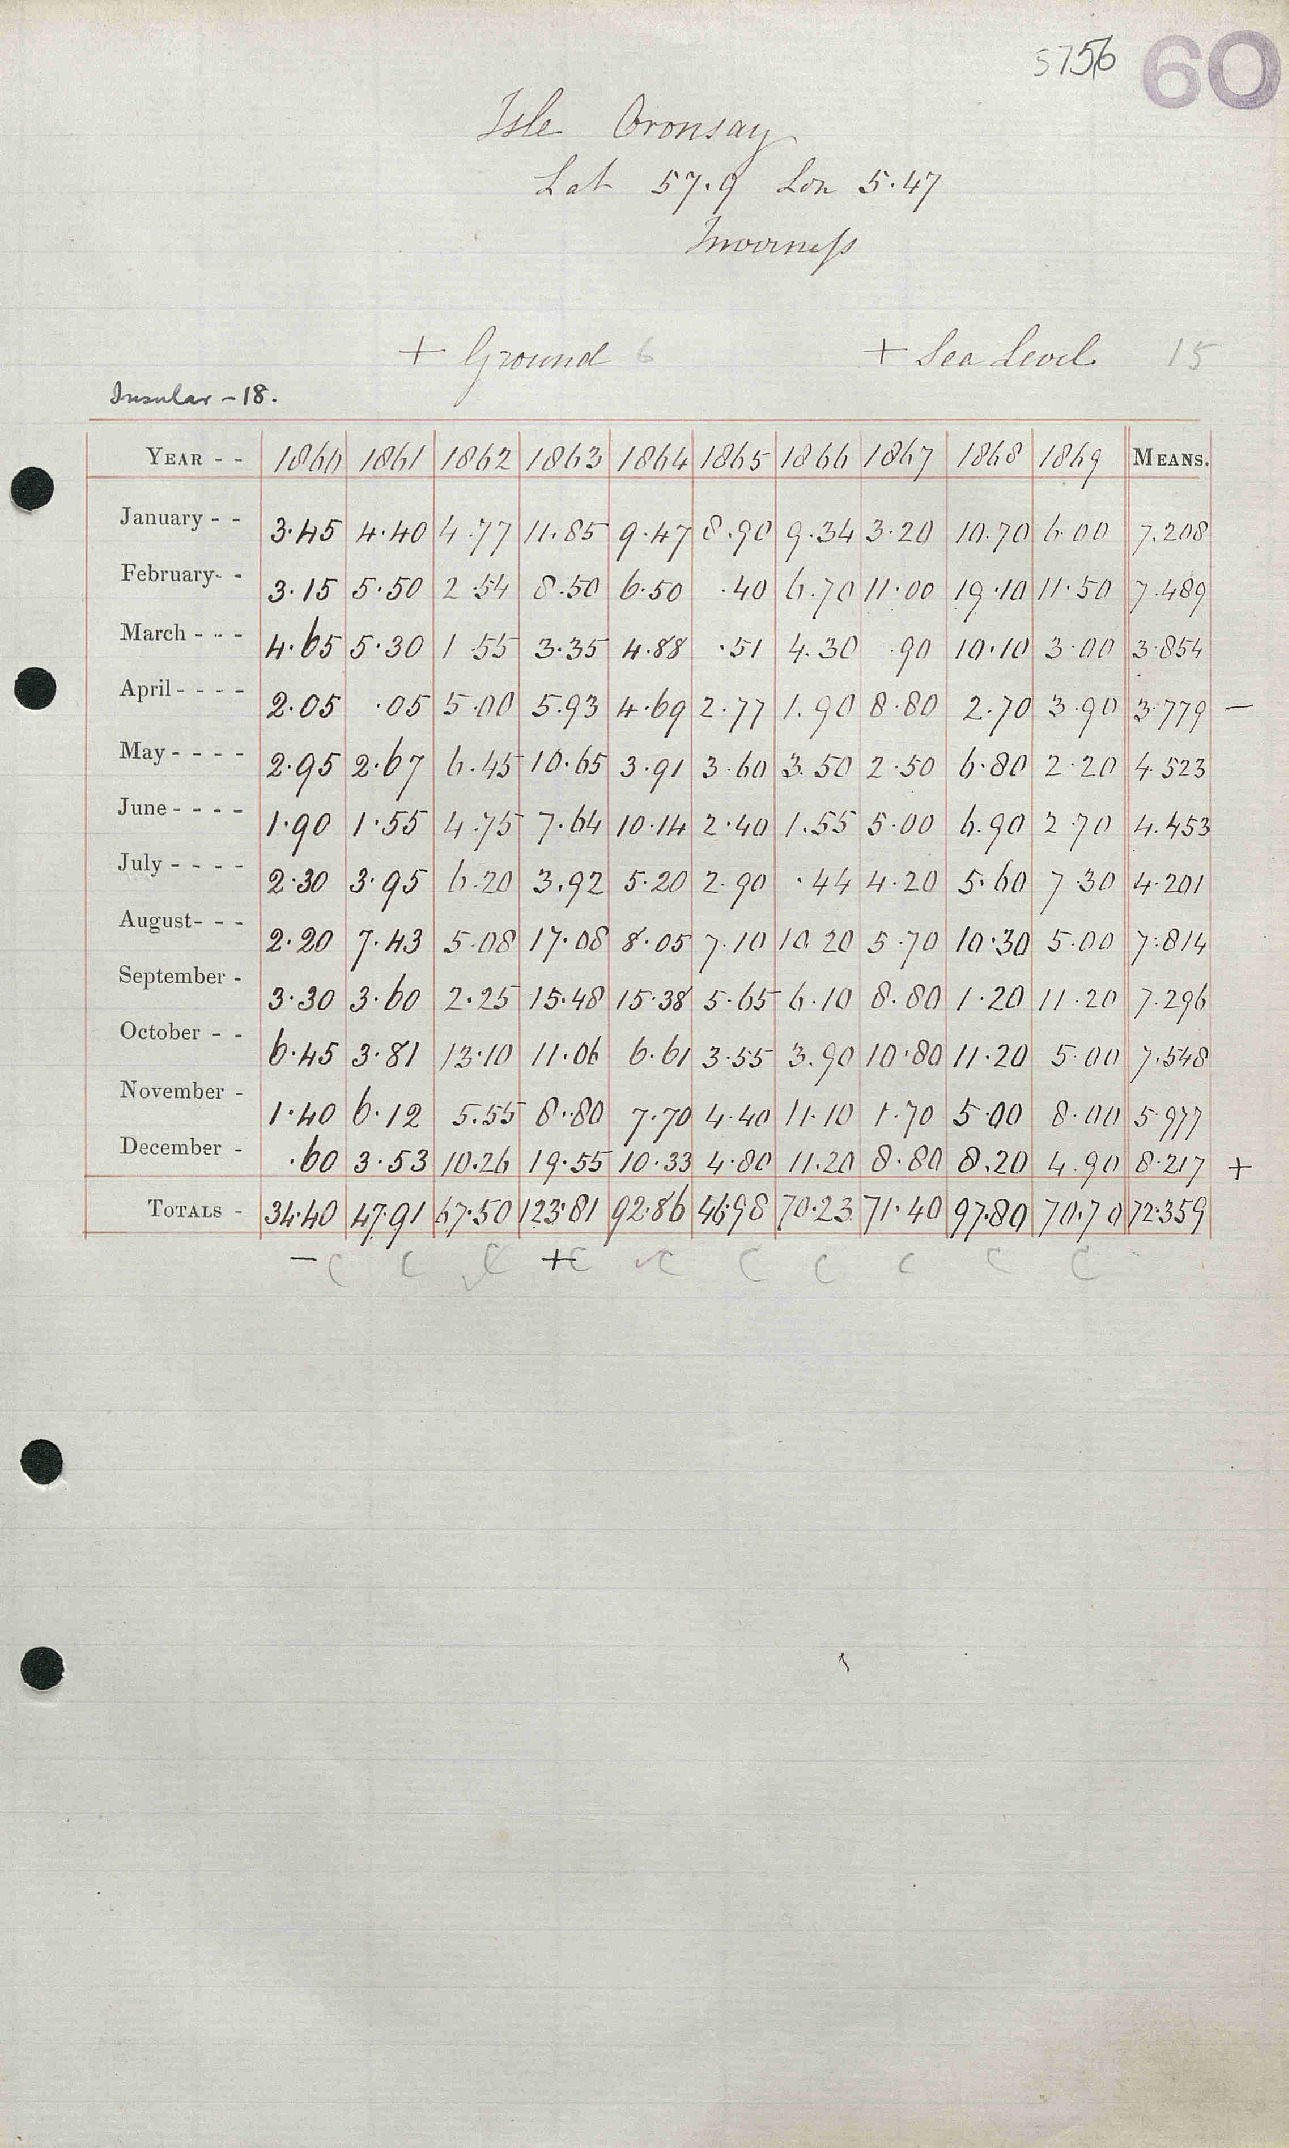 5756 60
Isle Oronsay
Lat 57.9 Lon 5.47
Inverness
+ Ground 6 + Sea Level 15
Insular - 18.
YEAR - - 1860 1861 1862 1863 1864 1865 1866 1867 1868 1869 MEANS.
January - - 3.45 4.40 4.77 11.85 9.47 8.90 9.34 3.20 10.70 6.00 7.208
February- - 3.15 5.50 2.54 8.50 6.50 .40 6.70 11.00 19.10 11.50 7.489
March - - - 4.65 5.30 1.55 3.35 4.88 .51 4.30 .90 10.10 3.00 3.854
April - - - - 2.05 .05 5.00 5.93 4.69 2.77 1.90 8.80 2.70 3.90 3.779 -
May - - - - 2.95 2.67 6.45 10.65 3.91 3.60 3.50 2.50 6.80 2.20 4.523
June - - - - 1.90 1.55 4.75 7.64 10.14 2.40 1.55 5.00 6.90 2.70 4.453
July - - - - 2.30 3.95 6.20 3.92 5.20 2.90 .44 4.20 5.60 7.30 4.201
August- - - 2.20 7.43 5.08 17.08 8.05 7.10 10.20 5.70 10.30 5.00 7.814
September - 3.30 3.60 2.25 15.48 15.38 5.65 6.10 8.80 1.20 11.20 7.296
October - - 6.45 3.81 13.10 11.06 6.61 3.55 3.90 10.80 11.20 5.00 7.548
November - 1.40 6.12 5.55 8.80 7.70 4.40 11.10 1.70 5.00 8.00 5.977
December - .60 3.53 10.26 19.55 10.33 4.80 11.20 8.80 8.20 4.90 8.217 +
TOTALS - 34.40 47.91 67.50 123.81 92.86 46.98 70.23 71.40 97.80 70.70 72.359
- C C C + C C C C C C C